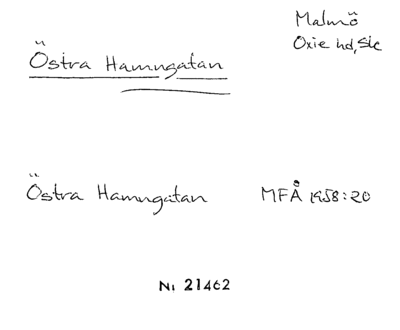 Malmö
Oxie hd, Sk
Östra Hamngatan
Östra Hamngatan MFÅ 1958:20
Ni 21462